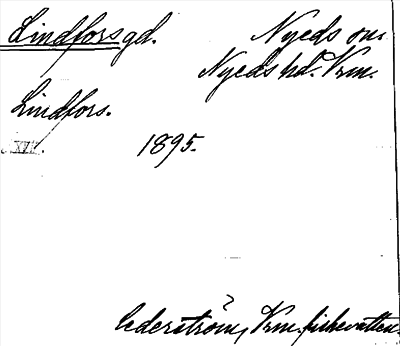 Lindforsgd. Nyeds sn.
Nyeds hd. Vrm.
Lindfors.
XVI.
1895.
Cederström, Vrm. fiskevatten.